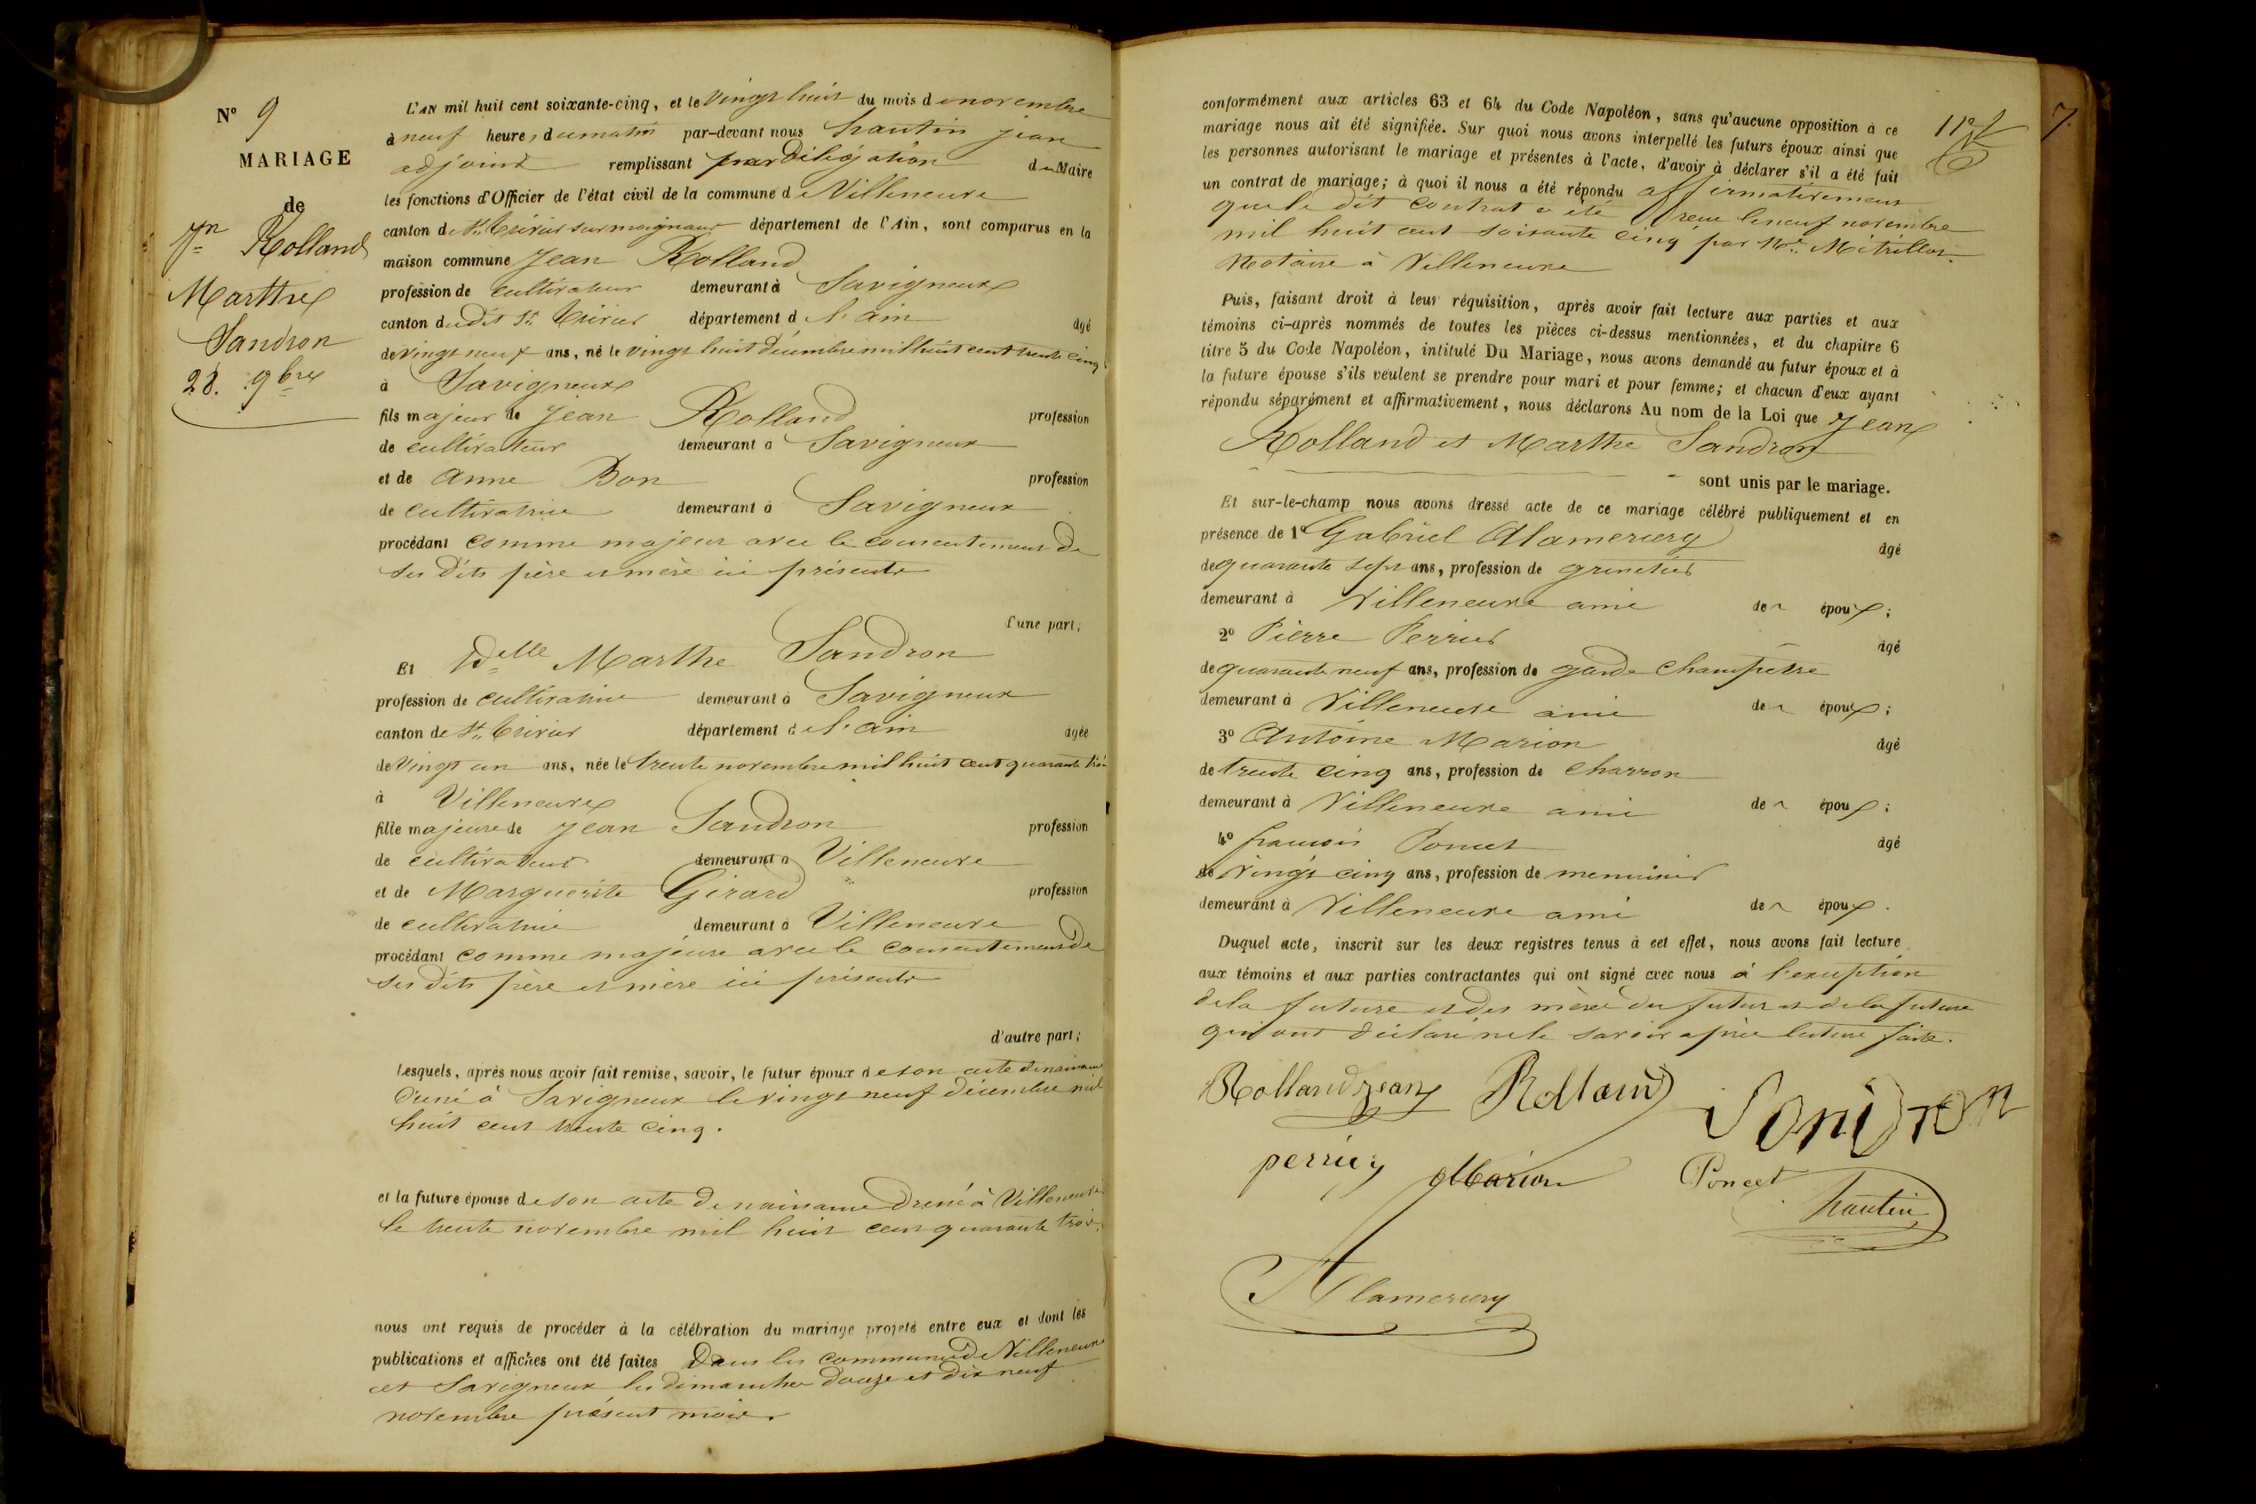 N° 9
MARIAGE
de
Jn Rolland
Marthe
Sandron
28. 9bre
L'AN mil huit cent soixante-cinq, et le vingt huit du mois de novembre
à neuf heures du matin par-devant nous Trantin jean
adjoint remplissant par Délégation du Maire
les fonctions d'Officier de l'état civil de la commune de Villeneuve
canton de St. Trivier sur moignans département de l'Ain, sont comparus en la
maison commune Jean Rolland
profession de cultivateur demeurant à Savigneux
canton du dit St. Trivier département de l'ain âgé
de vingt neuf ans, né le vingt huit Décembre mil huit cent trente cinq
à Savigneux
fils majeur de Jean Rolland profession
de cultivateur demeurant à Savigneux
et de Anne Bon profession
de cultivatrice demeurant à Savigneux
procédant comme majeur avec le consentement de
ses dits père et mère ici présents
d'une part;
Et Delle Marthe Sandron
profession de cultivatrice demeurant à Savigneux
canton de St. Trivier département de l'ain âgée
de vingt un ans, née le trente novembre mil huit cent quarante trois
à Villeneuve
fille majeure de Jean Sandron profession
de cultivateur demeurant à Villeneuve
et de Marguerite Girard profession
de cultivatrice demeurant à Villeneuve
procédant comme majeure avec le consentement de
ses dits père et mère ici présents
d'autre part;
Lesquels, après nous avoir fait remise, savoir, le futur époux de son acte de naissance
Dréssé à Savigneux le vingt neuf décembre mil
huit cent trente cinq.
et la future épouse de son acte de naissance Dressé à Villeneuve
le trente novembre mil huit cent quarante trois.
nous ont requis de procéder à la célébration du mariage projeté entre eux et dont les
publications et affiches ont été faites Dans les communes de Villeneuve
et Savigneux les dimanches douze et dix neuf
novembre présent mois.
7.
conformément aux articles 63 et 64 du Code Napoléon, sans qu'aucune opposition à ce
mariage nous ait été signifiée. Sur quoi nous avons interpellé les futurs époux ainsi que
les personnes autorisant le mariage et présentes à l'acte, d'avoir à déclarer s'il a été fait
un contrat de mariage; à quoi il nous a été répondu affirmativement
que le dit contrat a été reçu le neuf novembre
mil huit cent soixante cinq par Me. Mitrillot
Notaire à Villeneuve
Puis, faisant droit à leur réquisition, après avoir fait lecture aux parties et aux
témoins ci-après nommés de toutes les pièces ci-dessus mentionnées, et du chapitre 6
titre 5 du Code Napoléon, intitulé Du Mariage, nous avons demandé au futur époux et à
la future épouse s'ils veulent se prendre pour mari et pour femme; et chacun d'eux ayant
répondu séparément et affirmativement, nous déclarons Au nom de la Loi que Jean
Rolland et Marthe Sandron
sont unis par le mariage.
Et sur-le-champ nous avons dressé acte de ce mariage célébré publiquement et en
présence de 1° Gabriel Alamercery âgé
de quarante sept ans, profession de grenetier
demeurant à Villeneuve ami des époux;
2° Pierre Perrier âgé
de quarante neuf ans, profession de garde champêtre
demeurant à Villeneuve ami des époux;
3° Antoine Marion âgé
de trente cinq ans, profession de charron
demeurant à Villeneuve ami des époux;
4° francois Poncet âgé
de vingt cinq ans, profession de menuisier
demeurant à Villeneuve ami des époux.
Duquel acte, inscrit sur les deux registres tenus à cet effet, nous avons fait lecture
aux témoins et aux parties contractantes qui ont signé avec nous à l'exception
de la future et des mères du futur et de la future
qui ont déclaré ne le savoir après lecture faite.
Rolland jean Rolland Sandron
perrier Marion Poncet
Trantin
Alamercery